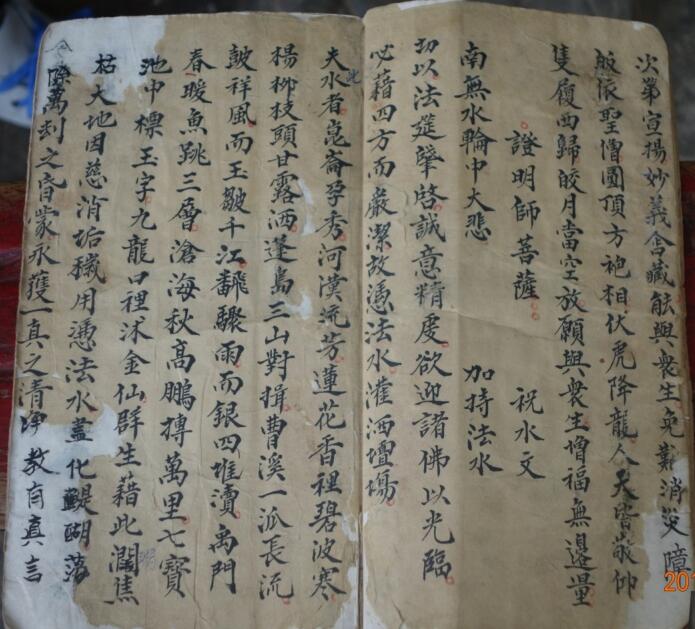 次第宣揚妙義含藏能與衆生免難消災障
皈依聖僧圓頂方袍相伏虎降龍人天皆敬仰
隻履西歸皎月當空放願與衆生增福無邊量
證明師菩薩 祝水文
南無水輪中大悲 加持法水
切以法筵肇啓誠意精虔欲迎諸佛以光臨
必藉四方而嚴潔故憑法水灌洒壇場
夫此水者崑崙孕秀河漢流芳蓮花香裡碧波寒
楊柳枝頭甘露洒蓬島三山對揖曹溪一派長流
皷祥風而玉皺千江飜驟雨而銀四堆瀆禹門
春暖魚跳三層滄海秋高鵬摶萬里七寶
池中標玉字九龍口裡沐金仙群生藉此潤焦
枯大地因慈消垢穢用憑法水盖化醍醐蕩
除萬刦之昏蒙永獲一真之清净教有真言
201